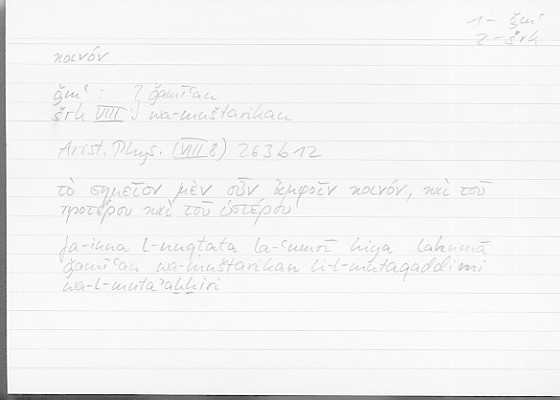 1 - ǧmʿ
2 - šrk
κοινόν
ǧmʿ : } ǧamīʿan
šrk VIII : } wa-muštarikan
Arist. Phys. (VIII 8) 263 b 12
τὸ σημεῖον μὲν οὖν ἀμφοῖν κοινόν, καὶ τοῦ
προτέρου καὶ τοῦ ὑστέρου
fa-inna l-nuqṭata la-ʿumrī hiya lahumā
ǧamīʿan wa-muštarikan li-l-mutaqaddimi
wa-l-mutaʾaḫḫiri